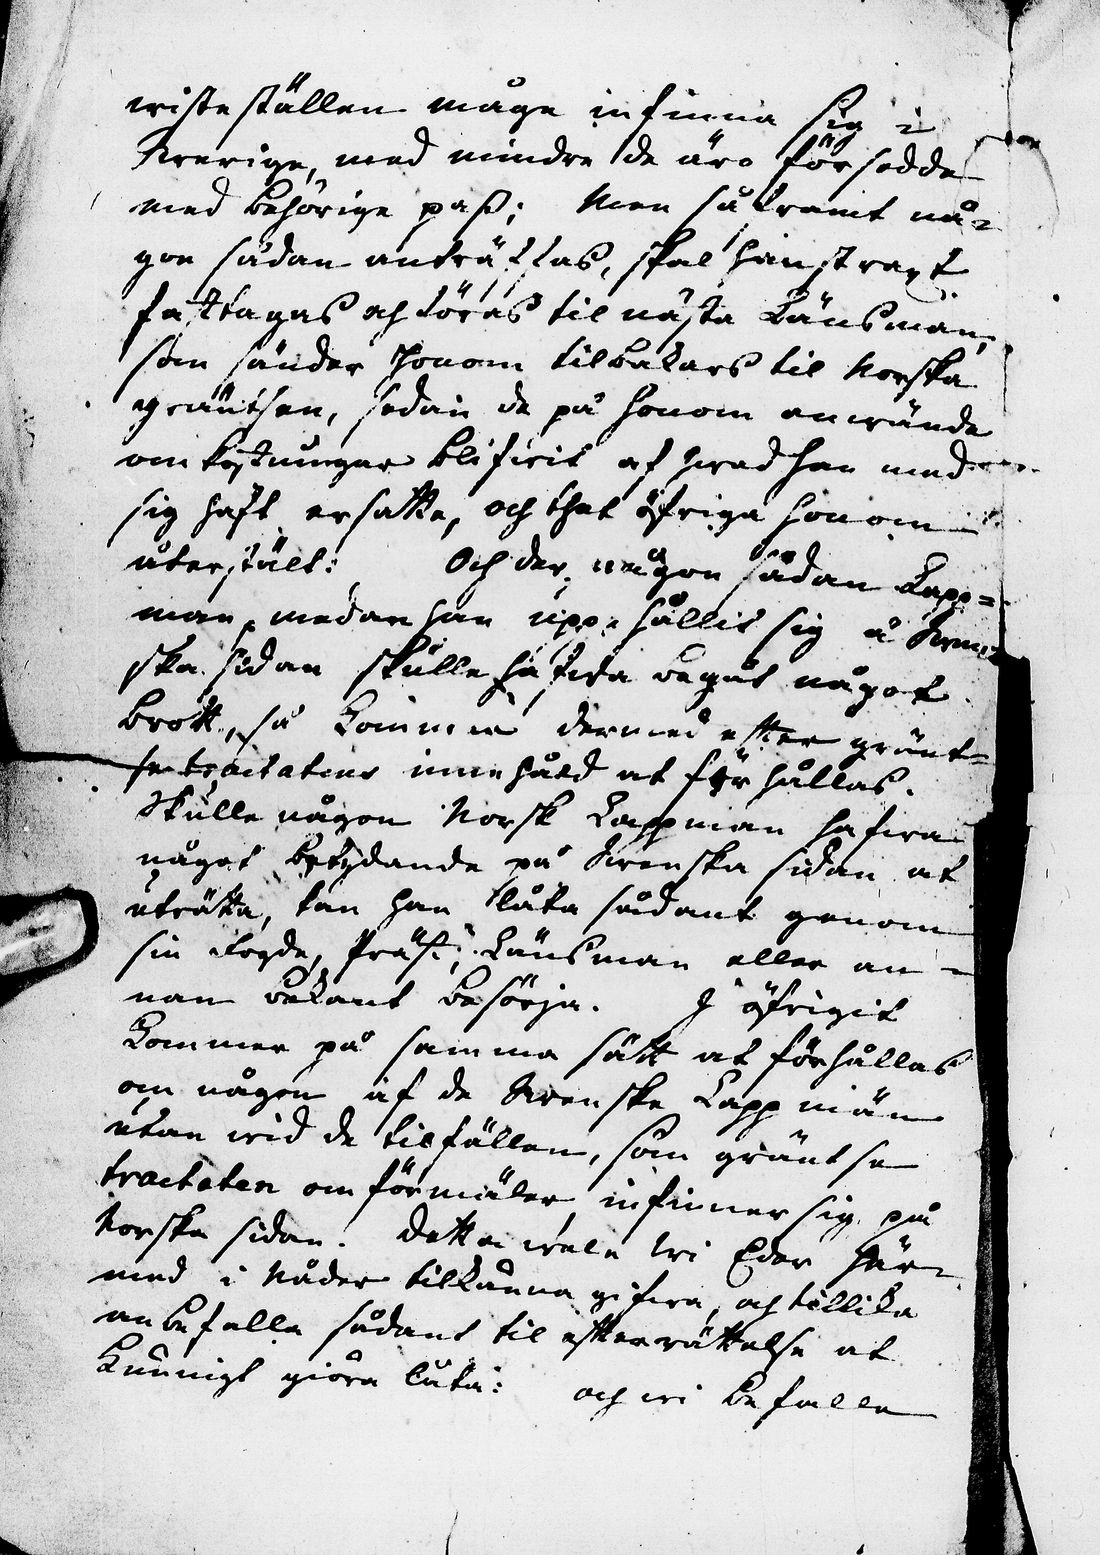 wisteställen måge infinna sig i
Swerige, med mindre de äro försedde
med behörige pass; Men såframt nå-
gon sådan anträffas, skal han strax
fasttagas och föras til nästa Länsman,
som sänder honom tilbakars til Norska
gräntsen, sedan de på honom anwände
omkostningar blifwit af hwad han med
sig haft ersatte, och thet öfriga honom
återstält: Och der någon sådan Lapp=
man, medan han uppehållit sig å Swen-
ska sidan skulle hafwa begåt något
brott, så kommer dermed efter gränt-
se tractatens innehåld at förhållas.
Skulle någon Norsk Lappman hafwa
något betydande på Swenska sidan at
uträtta, kan han låta sådant genom
sin Fogde, Präst, Länsman eller an-
nan bekant besörja. I öfrigit
kommer på samma sätt at förhållas
om någon af de Swenske Lappmän
utan wid de tilfällen, som gräntse
tractaten omförmäler, infinner sig på
Norska sidan. Detta wele Wi Eder här-
med i Nåder tilkänna gifwa, och tillika
anbefalle sådant til efterrättelse at
kunnigt giöra låta: och wi befalle